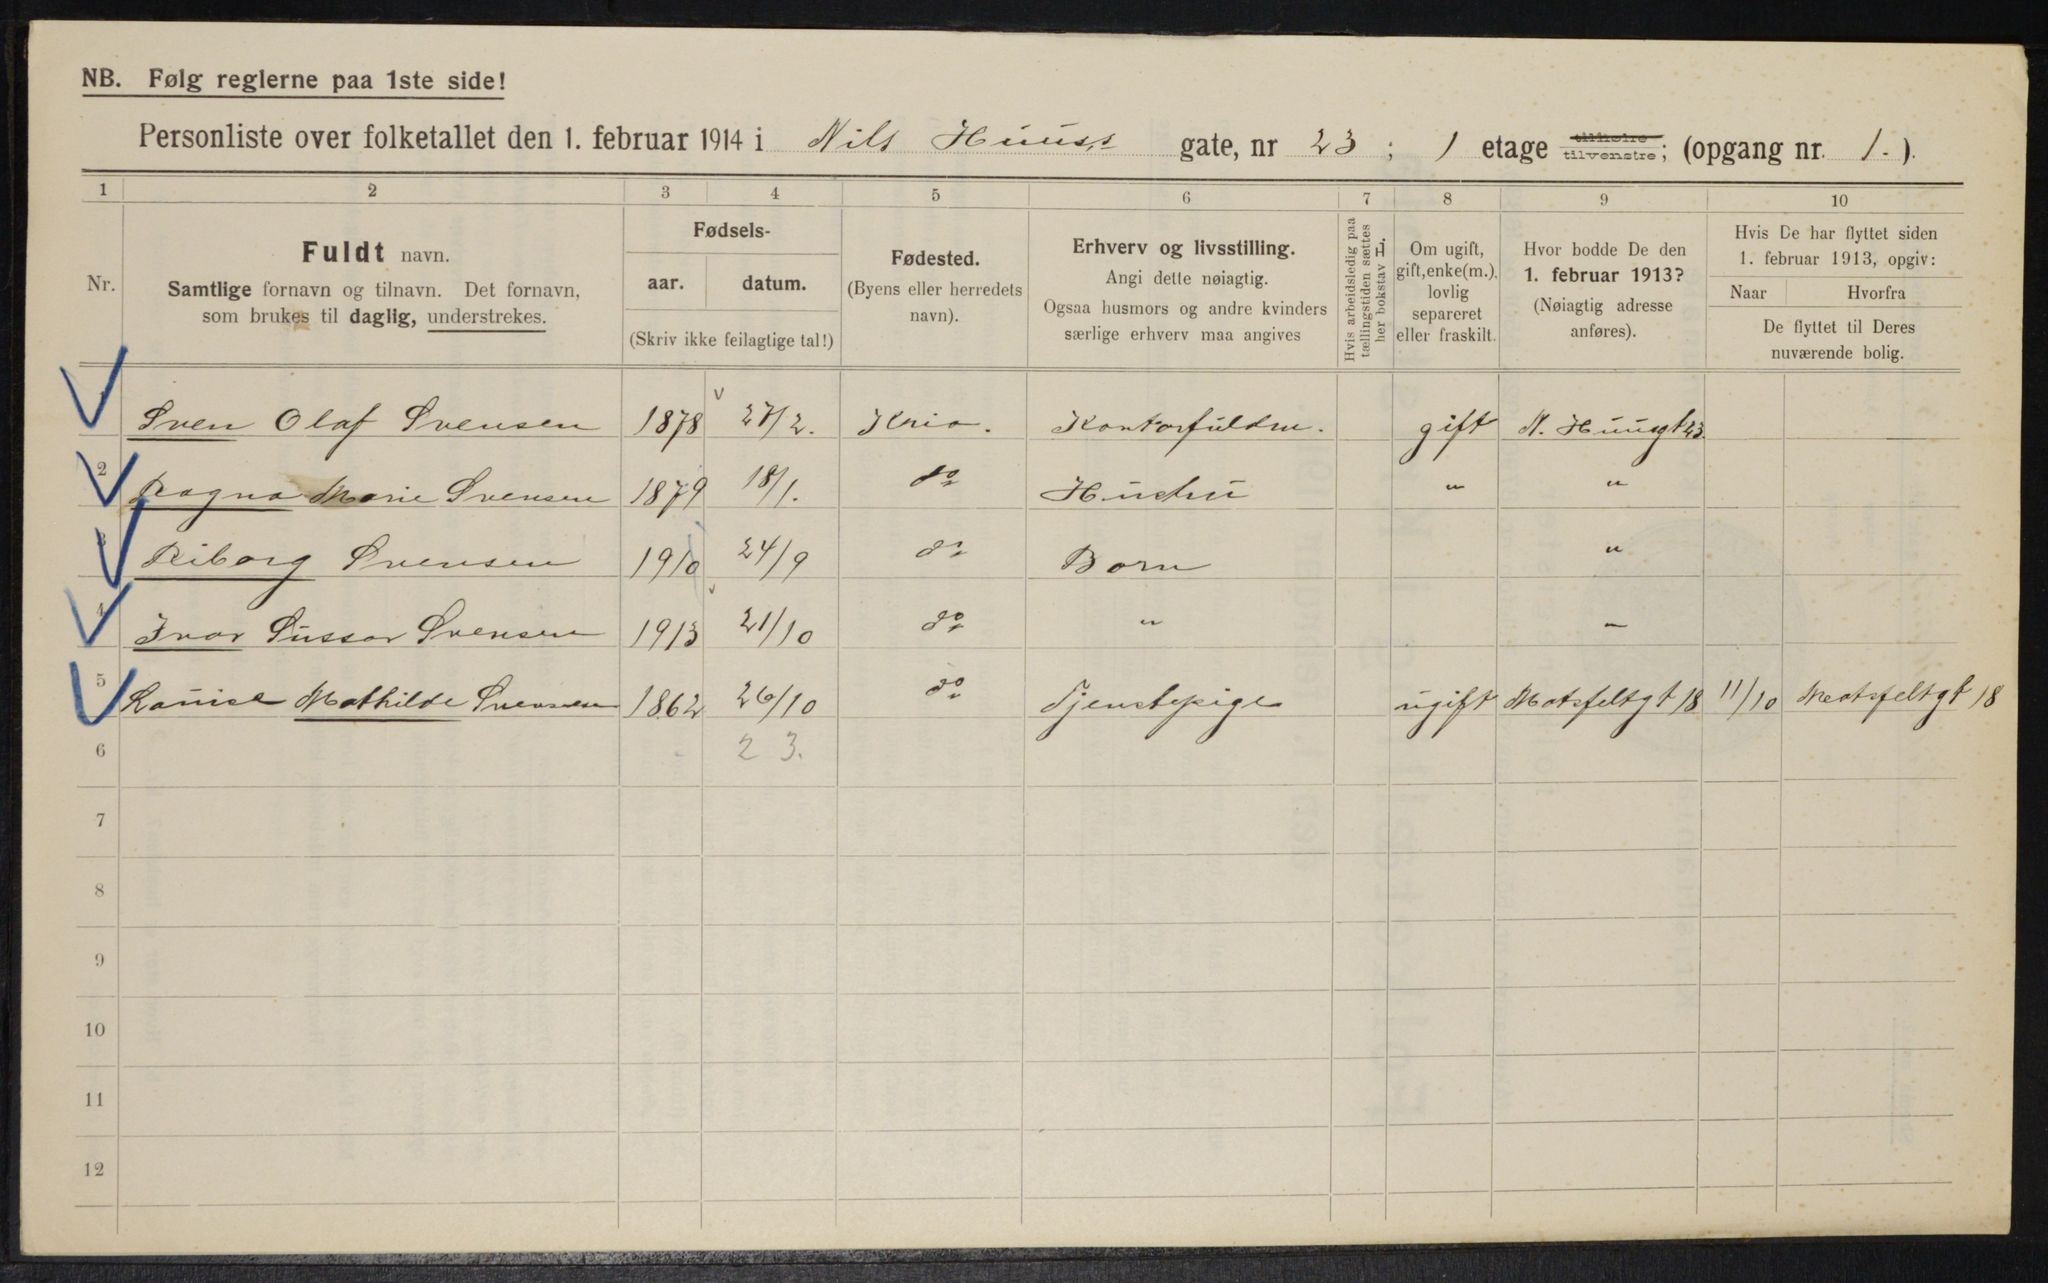 NB. Følg reglerne paa 1ste side!
Personliste over folketallet den 1. februar 1914 i Nils Huuss gate, nr 23 ; 1 etage tilhøire tilvenstre; (opgang nr. 1. ).
1 2 3 4 5 6 7 8 9 10
Nr.
Fuldt navn.
Samtlige fornavn og tilnavn. Det fornavn,
som brukes til daglig, understrekes.
Fødsels-
aar. datum.
(Skriv ikke feilagtige tal!)
Fødested.
(Byens eller herredets
navn).
Erhverv og livsstilling.
Angi dette nøiagtig.
Ogsaa husmors og andre kvinders
særlige erhverv maa angives
Hvis arbeidsledig paa
tællingstiden sættes
her bokstav L.
Om ugift,
gift, enke(m.),
lovlig
separeret
eller fraskilt.
Hvor bodde De den
1. februar 1913?
(Nøiagtig adresse
anføres).
Hvis De har flyttet siden
1. februar 1913, opgiv:
Naar Hvorfra
De flyttet til Deres
nuværende bolig.
Sven Olaf Svensen 1878 27/2. Kria. Kontorfuldm. gift N. Huusgt 23
2 Ragna Marie Svensen 1879 18/1. do Hustru " "
3 Riborg Svensen 1910 24/9 do Barn "
4 Ivar Svensen 1913 21/10 do " "
5 Louise Mathilde Svensen 1862 26/10 do Tjenstepige ugift Motsfeltgt 18 11/10 Motsfeltgt 18
6 2 3.
7
8
9
10
11
12